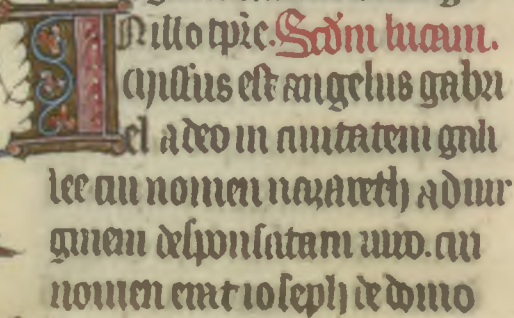 In illo tpre. Scdm lucam.
Missus est angelus gabri
el a deo in ciuitatem gali
lee cui nomen nazareth ad uir
ginem desponsatam uiro. cui
nomen erat ioseph de domo